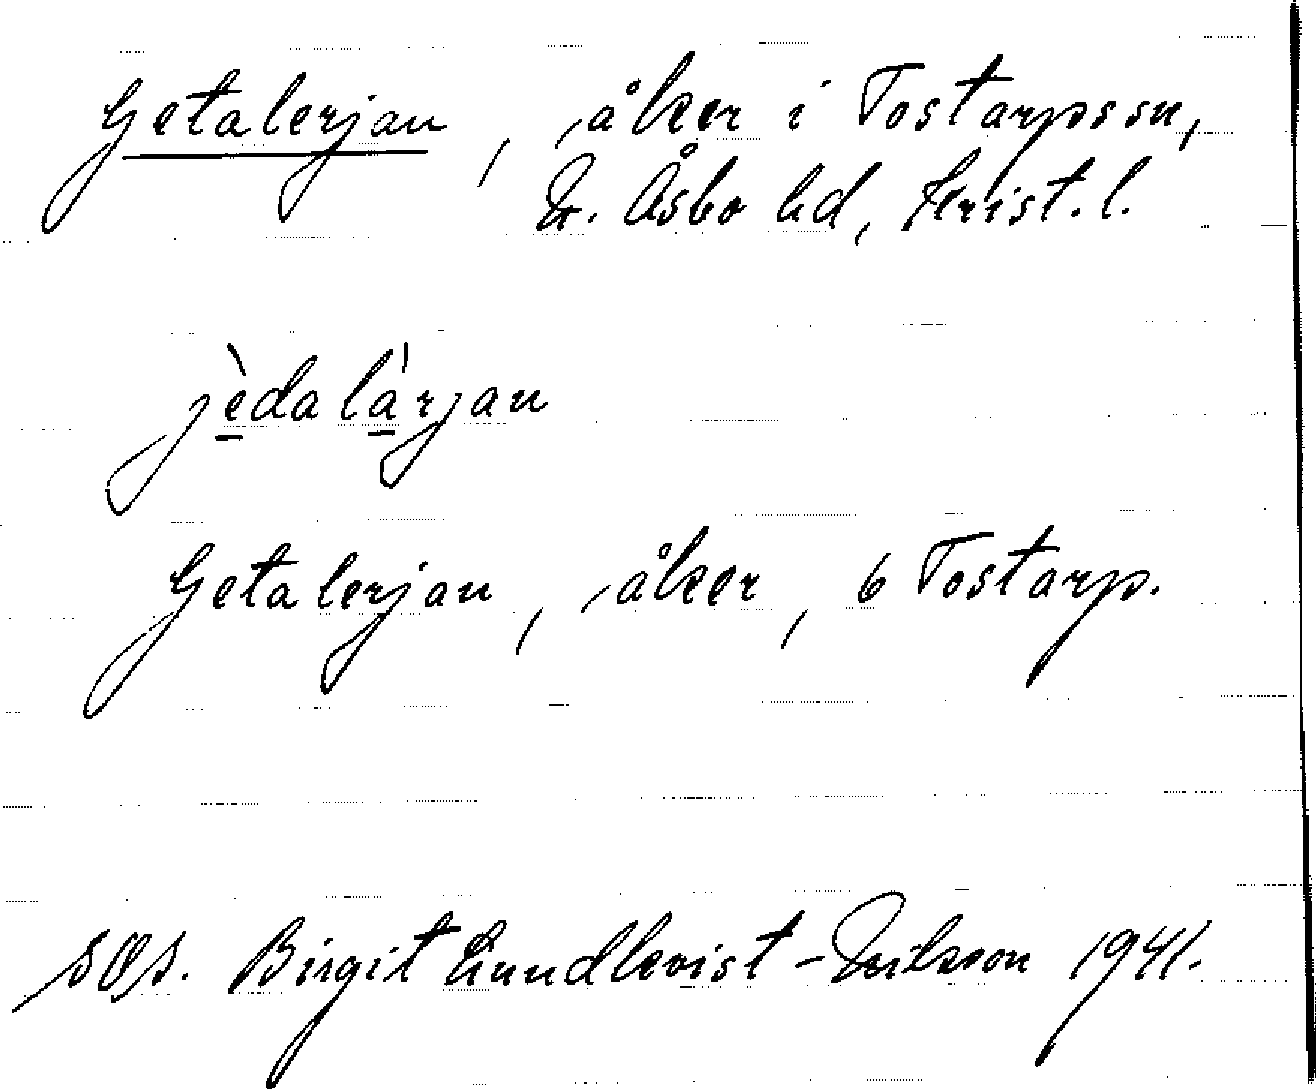 Getalerjan, åker i Tostarps sn,
N. Åsbo hd, Krist. l.
jèdalàrjan
Getalerjan, åker, 6 Tostarp.
Birgit Lundkvist-Nilsson 1941.